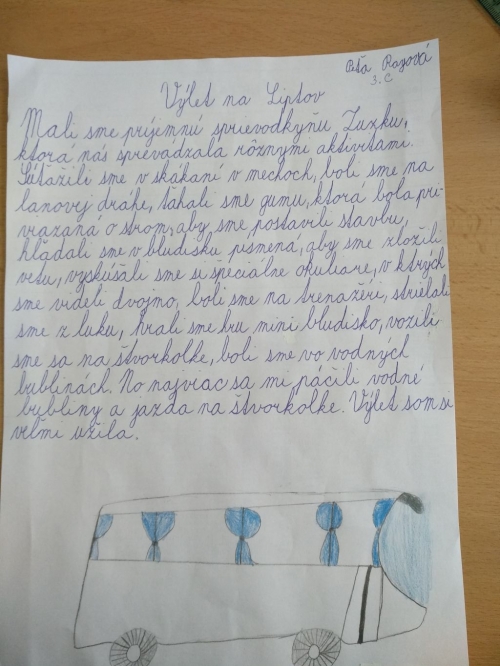 Peťa Raxová
3. C
Výlet na Liptov
Mali sme príjemnú sprievodkyňu Zuzku,
ktorá nás sprevádzala rôznymi aktivitami.
Súťažili sme v skákaní v mechoch, boli sme na
lanovej dráhe, ťahali sme gumu, ktorá bola pri-
viazaná o strom, aby sme postavili stavbu,
hľadali sme v bludisku písmená, aby sme zložili
vetu, vyskúšali sme si špeciálne okuliare, v ktrých
sme videli dvojmo, boli sme na trenažéri, strieľali
sme z luku, hrali sme hru mini bludisko, vozili
sme sa na štvorkolke, boli sme vo vodných
bublinách. No najviac sa mi páčili vodné
bubliny a jazda na štvorkolke. Výlet som si
veľmi užila.